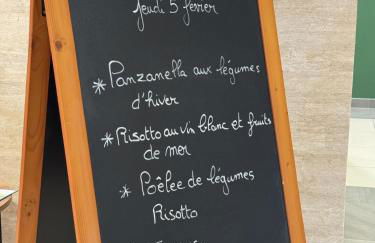 Jeudi 5 février
* Panzanella aux légumes
d'hiver
* Risotto au vin blanc et fruits
de mer
* Poêlee de légumes
Risotto